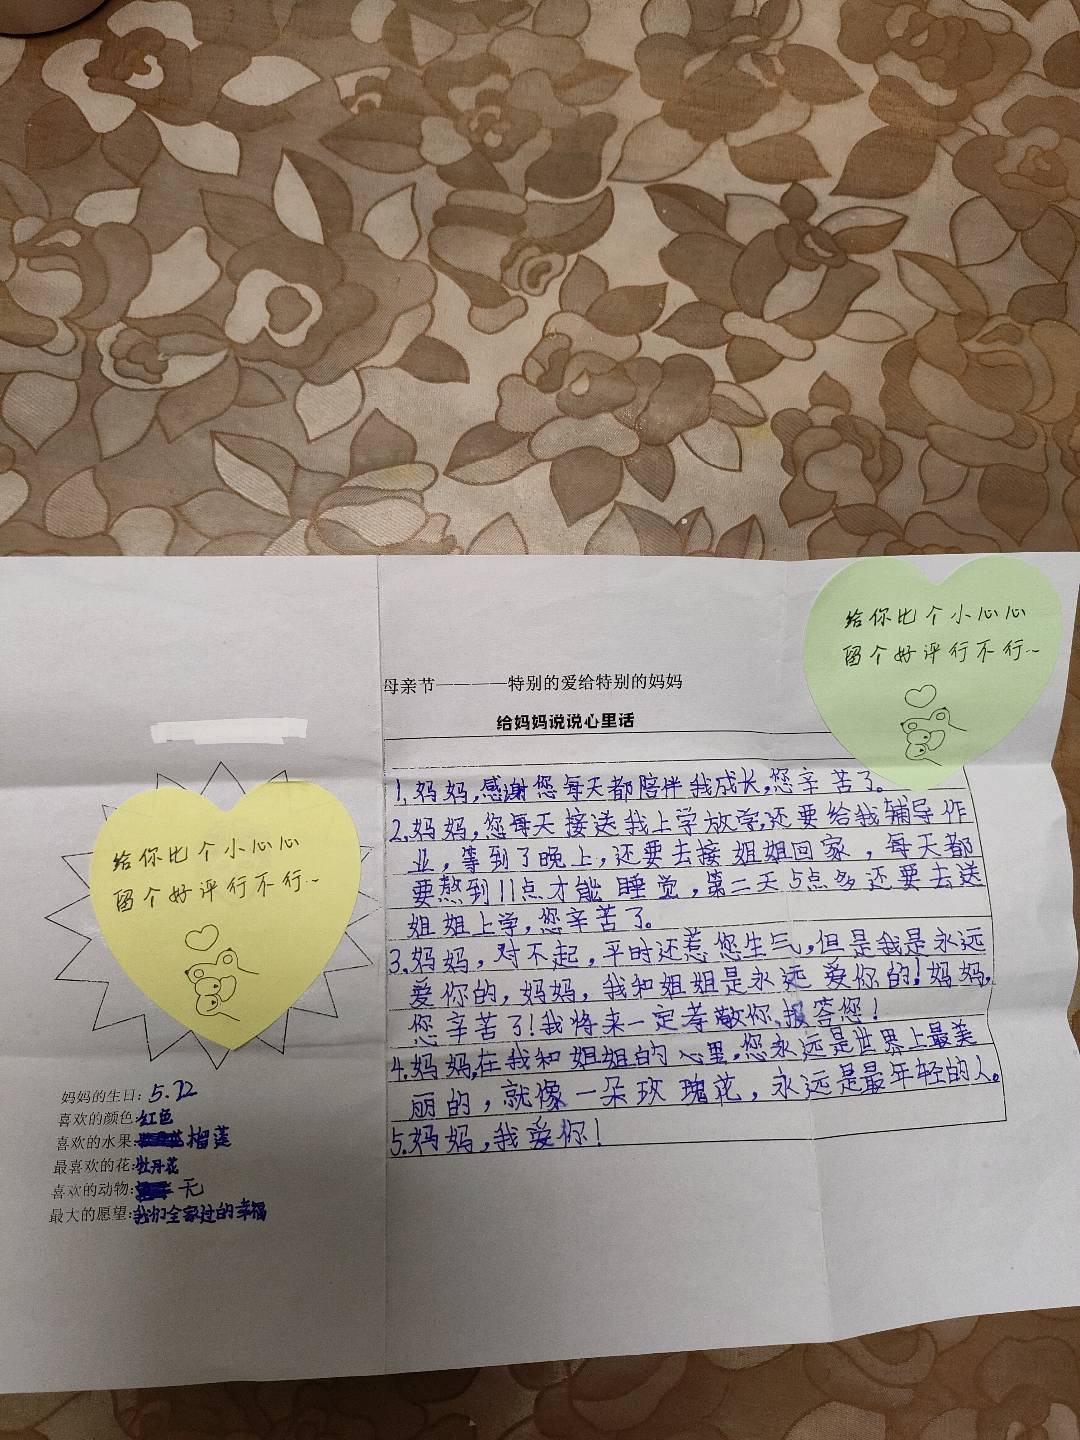 给你比个小心心
留个好评行不行~
母亲节————特别的爱给特别的妈妈
给妈妈说说心里话
1.妈妈,感谢您每天都陪伴我成长,您辛苦了。
2.妈妈,您每天接送我上学放学,还要给我辅导作
业，等到了晚上，还要去接姐姐回家，每天都
要熬到11点才能睡觉，第二天5点多还要去送
姐姐上学，您辛苦了。
3.妈妈，对不起，平时还惹您生气，但是我是永远
爱你的，妈妈，我和姐姐是永远爱你的！妈妈，
您辛苦了！我将来一定孝敬你,报答您！
4.妈妈,在我和姐姐的心里,您永远是世界上最美
丽的，就像一朵玫瑰花，永远是最年轻的人。
5.妈妈,我爱你！
给你比个小心心
留个好评行不行~
妈妈的生日：5.22
喜欢的颜色:红色
喜欢的水果:榴莲
最喜欢的花:牡丹花
喜欢的动物:无
最大的愿望:我们全家过的幸福